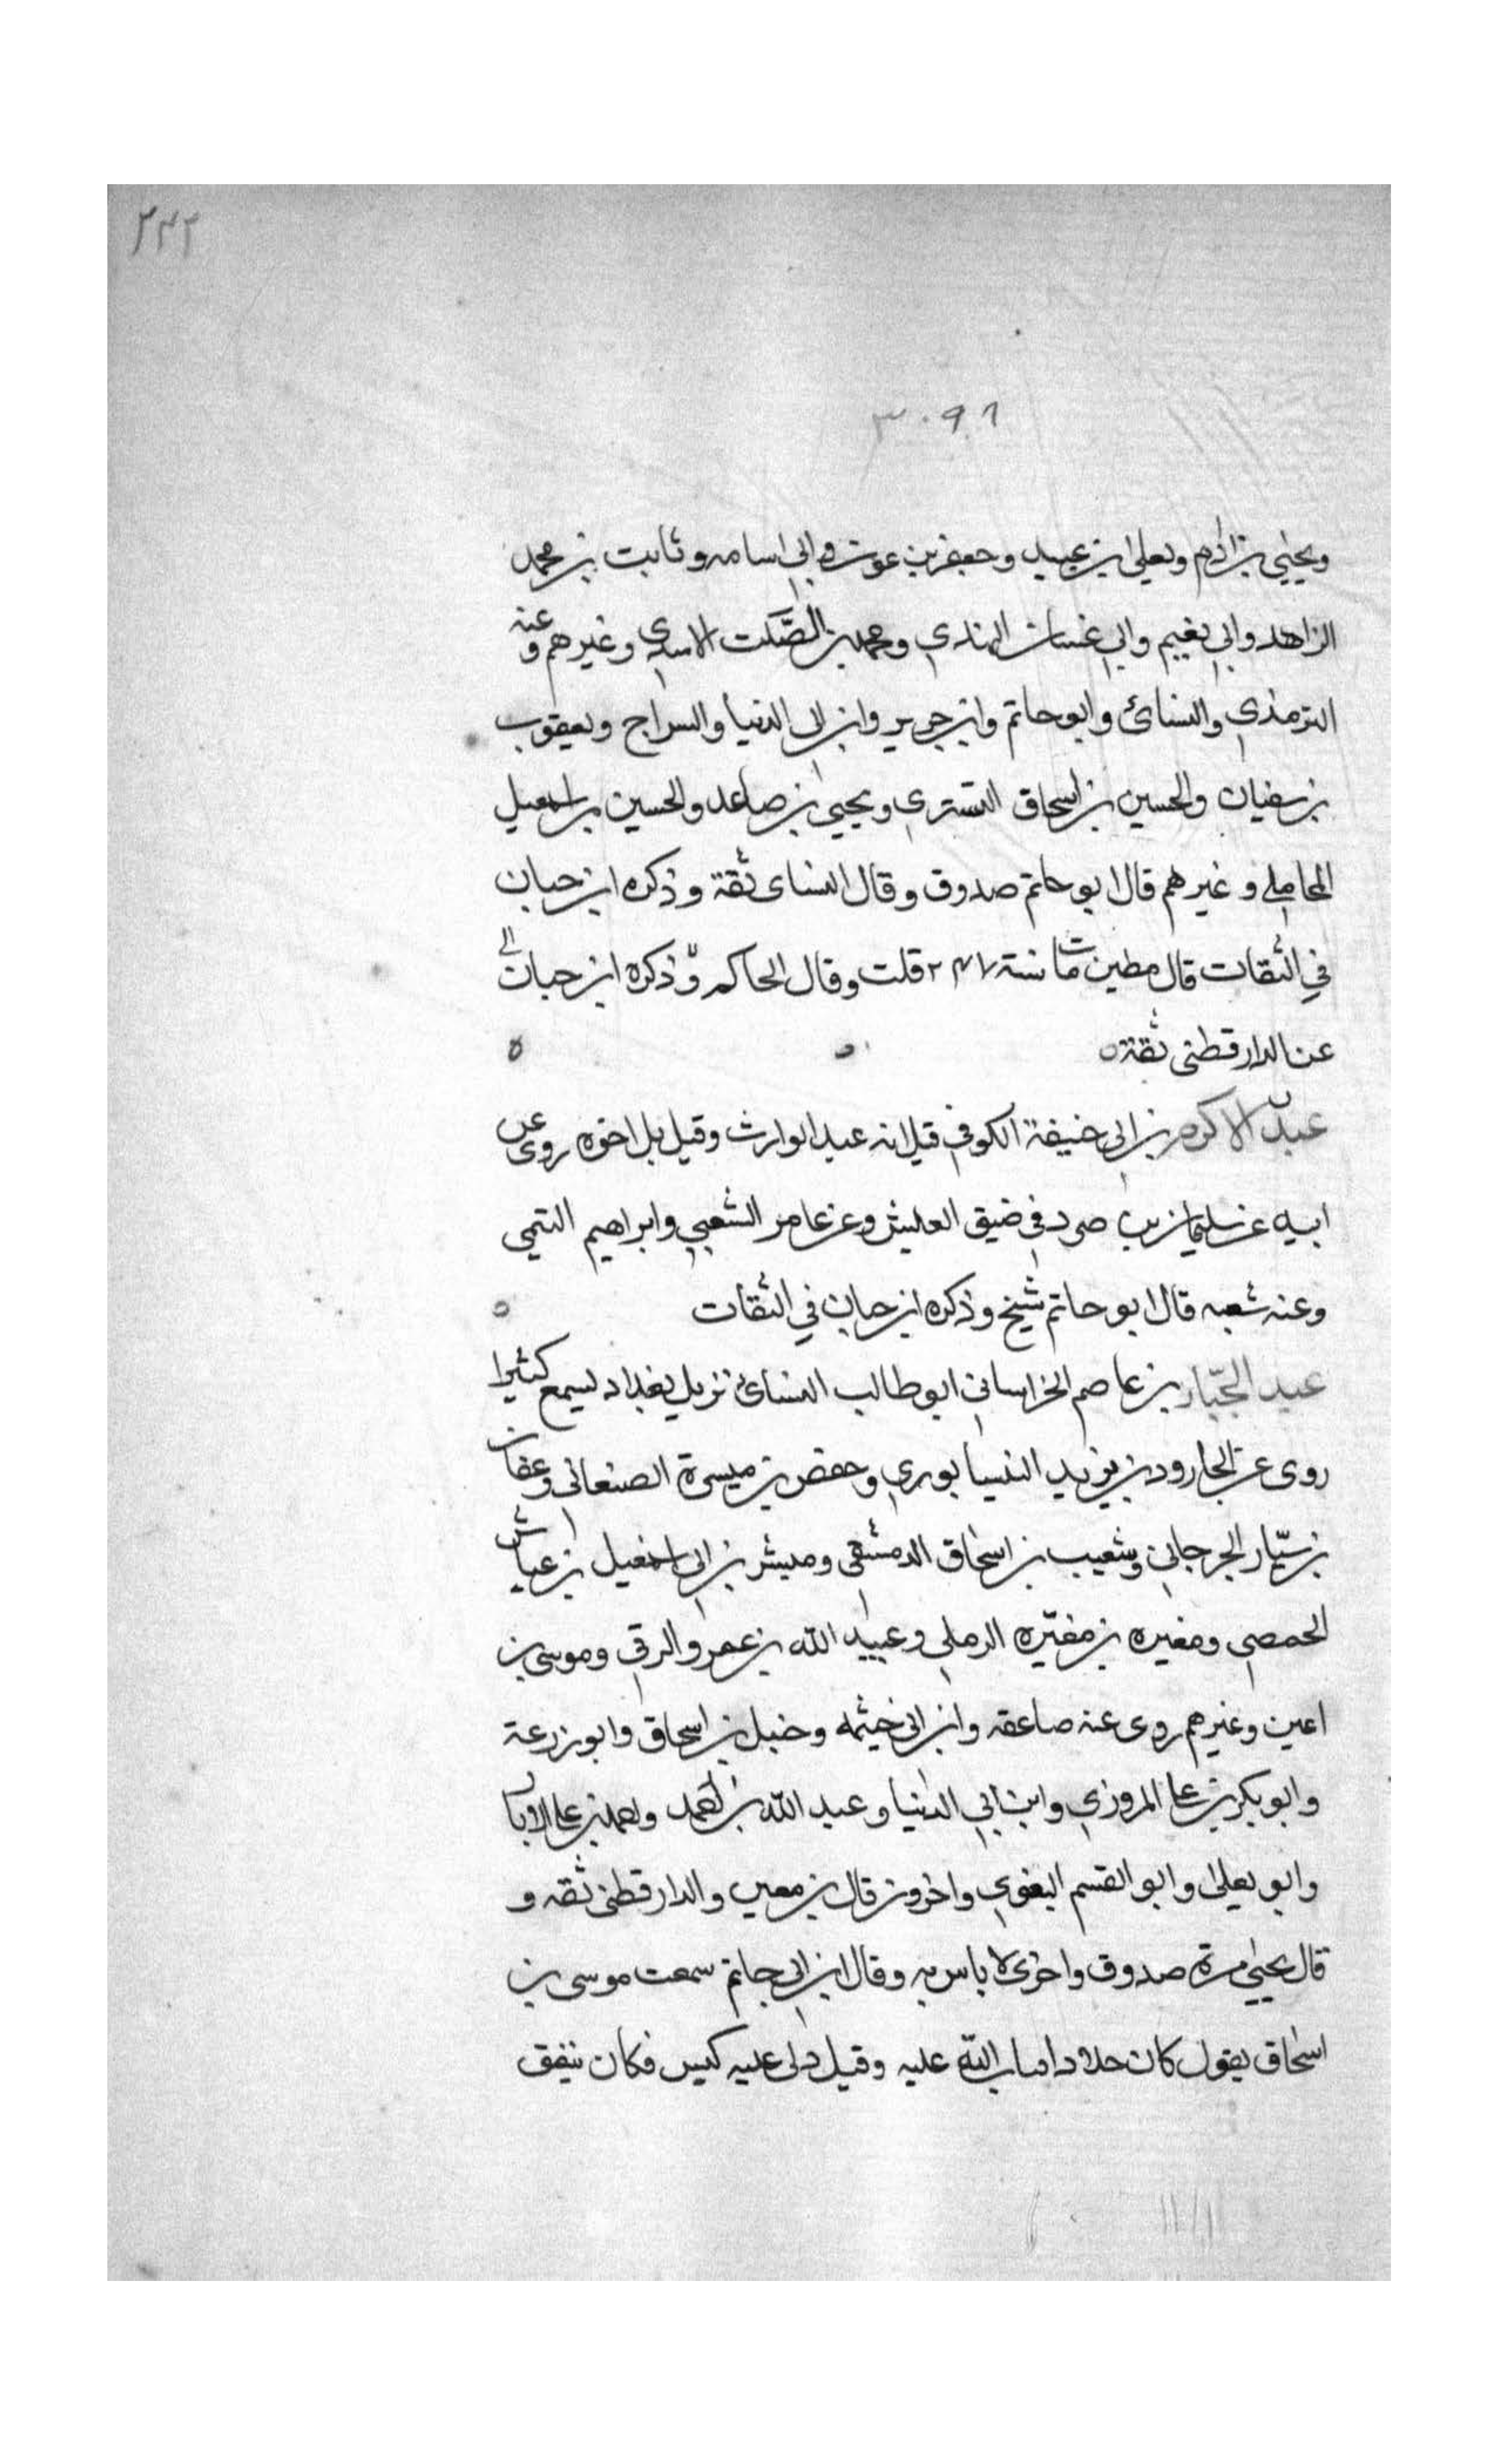 ٢٤٢
٣٠٩٦
ويحيى بن ادم ويعلى بن عبيد وجعفر بن عون وابي اسامه وثابت بن محمد
الزاهد وابي نعيم وابي غسان النهدي ومحمد بن الصلت الاسدي وغيرهم وعنه
الترمذي والنسائ وابو حاتم وابن جرير وابن ابى الدنيا والسراج ويعقوب
بن سفيان والحسين بن اسحاق التستري ويحيى بن صاعد والحسين بن اسمعيل
المحاملي وغيرهم قال ابو حاتم صدوق وقال النساى ثقة وذكره ابن حبان
في الثقات قال مطين مات سنة ٢٤٧ قلت وقال الحاكم وذكره ابن حبان
عن الدارقطنى ثقة
عبد الاكرم بن ابى حنيفة الكوفي قيل انه عبد الوارث وقيل بل اخوه روى عن
ابيه عن سليمان بن صرد في ضيق العيش وعن عامر الشعبي وابراهيم التيمى
وعنه شعبه قال ابو حاتم شيخ وذكره ابن حبان في الثقات
عبد الجبّار بن عاصم الخراساني ابو طالب النسائ نزيل بغداد سمع كثيرا
روى عن الجارود بن يزيد النيسابوري وحفص بن ميسرة الصنعانى وعفان
بن سيّار الجرجاني وشعيب بن اسحاق الدمشقى ومبشر بن ابى اسمعيل بن عياش
الحمصى ومغيره بن مغيره الرملي وعبيد الله بن عمرو الرقي وموسى بن
اعين وغيرهم روى عنه صاعقه وابن ابى خيثمه وحنبل بن اسحاق وابو زرعة
وابو بكر بن على المروزي وابن ابي الدنيا وعبد الله بن احمد واحمد بن على الابار
وابو يعلى وابو القسم البغوي واخرون قال بن معين والدارقطنى ثقه و
قال يحيى مرة صدوق واخرى لا باس به وقال ابن ابى حاتم سمعت موسى بن
اسحاق يقول كان جلادا فتاب الله عليه وقيل دلى عليه كيس فكان ينفق